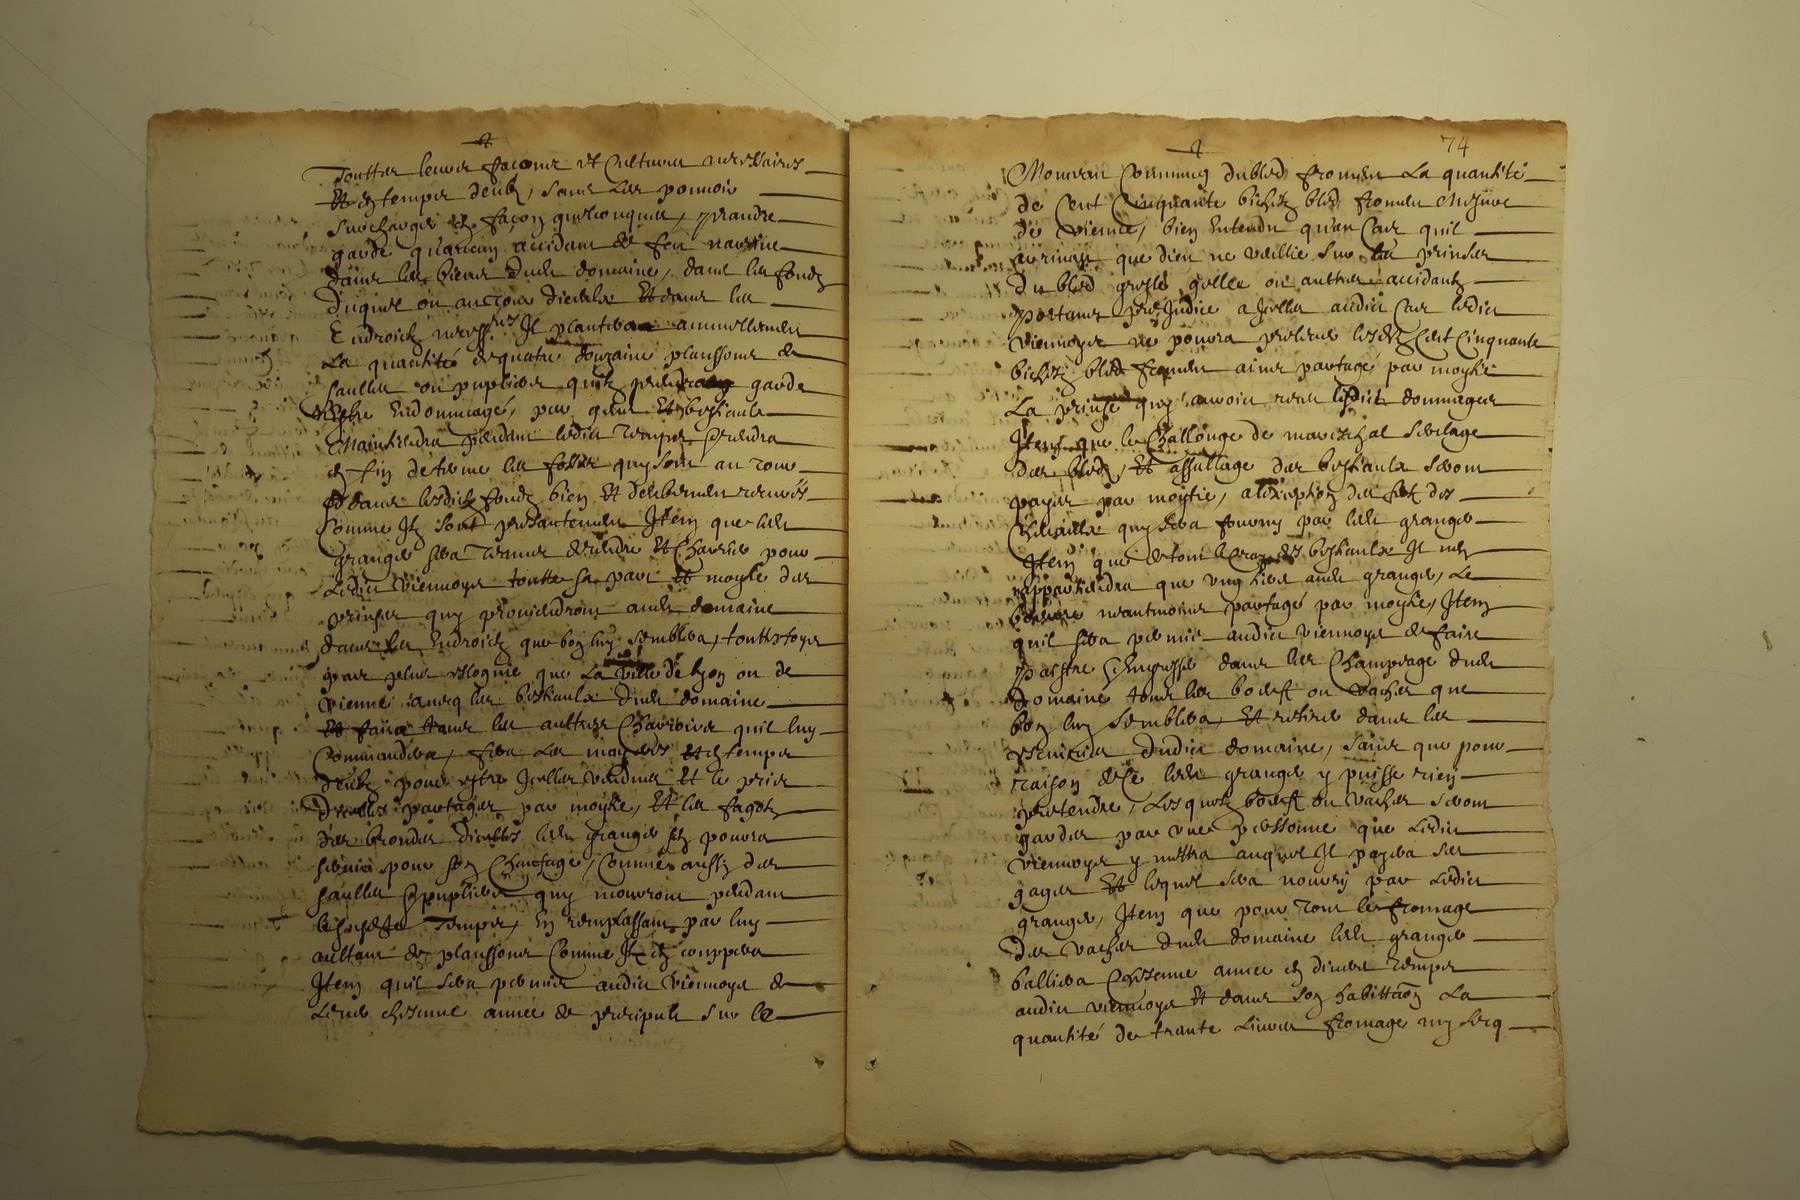 Touttes leurs façons et Cultures necessaires
Et en temps deub, sans les pouvoir
surcharger en façon quelconque, prandre
garde qu'aucun accidant de feu n'arrive
dans les biens dudit domaine, dans les fondz
duquel ou au tour d'iceluy Et dans les
Endroictz necess.res Il plantera annuellement
La quantité de quatre douzaine planssons de
saulles ou puplier qu'ilz prendra garde
n'Estre Endommagé, par gens Et bestiaulx
Maintiendra pendant ledict temps Et rendra
en fin de ferme les fossés quy sont au tour
Et dans lesdictz fondz bien Et deubement recurés
Comme Ilz sont presentement Item que ledit
granger sera tenu de rendre Et Charrier pour
Ledict Viennoys toutte sa part Et moytié des
prinses quy proviendront audit domaine
dans les Endroictz que bon luy semblera, touttefoys
pas plus esloigné que La Ville de lyon ou de
vienne avecq les bestiaulx dudit domaine
Et faire tous les aultres Charroirs qu'il luy
Commandera, fera Les Et en temps
deubz pour estre Icelles vendues Et le prix
D'icelles partager par moytié, Et les fagotz
des brondes d'icelles ledit granger en pourra
servir pour son Chauffage, Comme aussy des
saulles Et pupliers quy mourront pendant
ledict Temps, En remplassant par luy
aultant de planssons Comme Il en couppera
Item quil sera permis audict Viennoys de
Lever chescune année de precipult sur le
74
Monceau Commung du bled froment La quantité
de Cent Cinquante bichetz bled froment Mesure
de vienne, bien Entendu qu'en Cas quil
avrinst que dieu ne veillie, sur les prinses
du bled gresle gellee ou aultres accidantz
portans prejudice a Icelles audict Cas ledict
Viennoys ne pourra prelever lesditz Cent Cinquante
bichetz bled froment ains partagé par moytié
La prinse quy avoir receu lesdictz dommages
Item que le Challonge de mareschal servlage
des bledz, Et assullage des bestiaulx seront
payés par moytié, a l'exception des fert des
Chevaulx quy sera fourny par ledit granger
Item que de tout le Croy des bestiaulx Il n'en
appartiendra que ung tiers audit granger, Le
beurre neantmoins partagé par moytié, Item
quil sera permis audict Viennoys de faire
Paistre Engresser dans les Champeage dudit
Domaine tous les boeufz ou vaches que
bon luy semblera, Et retirer dans les
Escuiries dudict domaine, sains que pour
raison de ce ledit granger y puisse rien
pretendre, Lesquelz boeufz ou vaches seront
gardés par une personne que Ledict
Viennoys y mettra auquel Il payera ses
gages Et lequel sera nourry par Ledict
granger, Item que pour tout le fromage
Des vaches dudit domaine ledit granger
balliera Chescune année en divers temps
audict viennoys Et dans son habittaon La
quantité de trante Livres fromage my secq